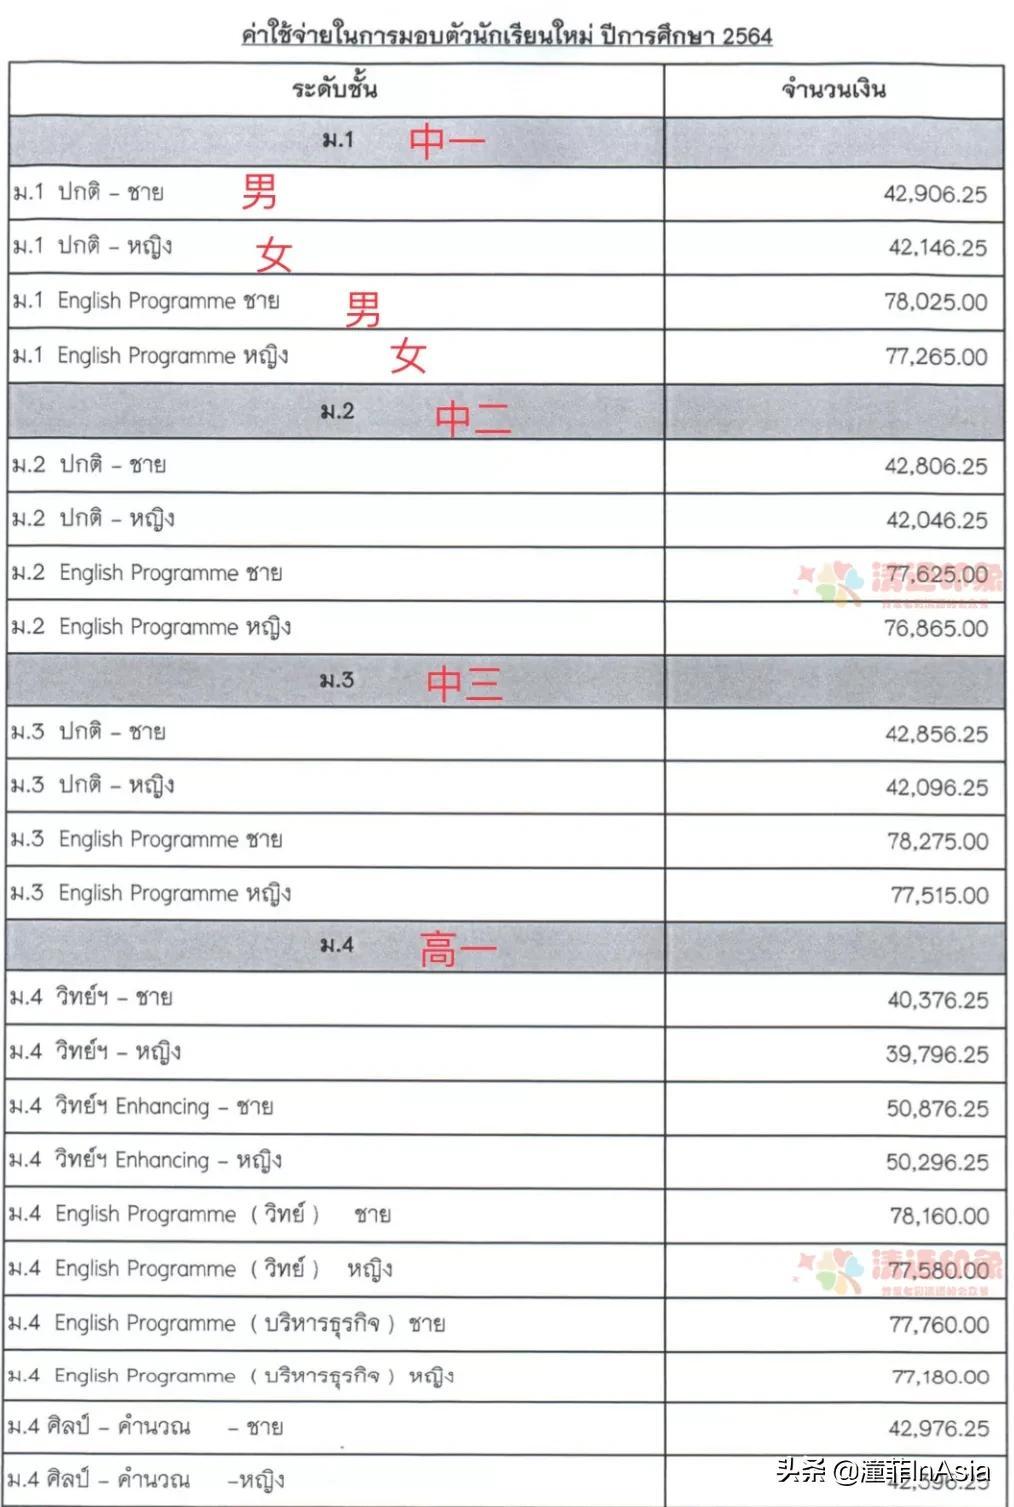 ค่าใช้จ่ายในการมอบตัวนักเรียนใหม่ ปีการศึกษา 2564
ระดับชั้น จำนวนเงิน
ม.1 中一
ม.1 ปกติ – ชาย 男 42,906.25
ม.1 ปกติ – หญิง 女 42,146.25
ม.1 English Programme ชาย 男 78,025.00
ม.1 English Programme หญิง 女 77,265.00
ม.2 中二
ม.2 ปกติ – ชาย 42,806.25
ม.2 ปกติ – หญิง 42,046.25
ม.2 English Programme ชาย 77,625.00
清迈印象
ม.2 English Programme หญิง 76,865.00
ม.3 中三
ม.3 ปกติ – ชาย 42,856.25
ม.3 ปกติ – หญิง 42,096.25
ม.3 English Programme ชาย 78,275.00
ม.3 English Programme หญิง 77,515.00
ม.4 高一
ม.4 วิทย์ฯ – ชาย 40,376.25
ม.4 วิทย์ฯ – หญิง 39,796.25
ม.4 วิทย์ฯ Enhancing – ชาย 50,876.25
ม.4 วิทย์ฯ Enhancing – หญิง 50,296.25
ม.4 English Programme ( วิทย์ ) ชาย 78,160.00
ม.4 English Programme ( วิทย์ ) หญิง 77,580.00
清迈印象
ม.4 English Programme ( บริหารธุรกิจ ) ชาย 77,760.00
ม.4 English Programme ( บริหารธุรกิจ ) หญิง 77,180.00
ม.4 ศิลป์ – คำนวณ – ชาย 42,976.25
ม.4 ศิลป์ – คำนวณ –หญิง
头条 @潼菲InAsia